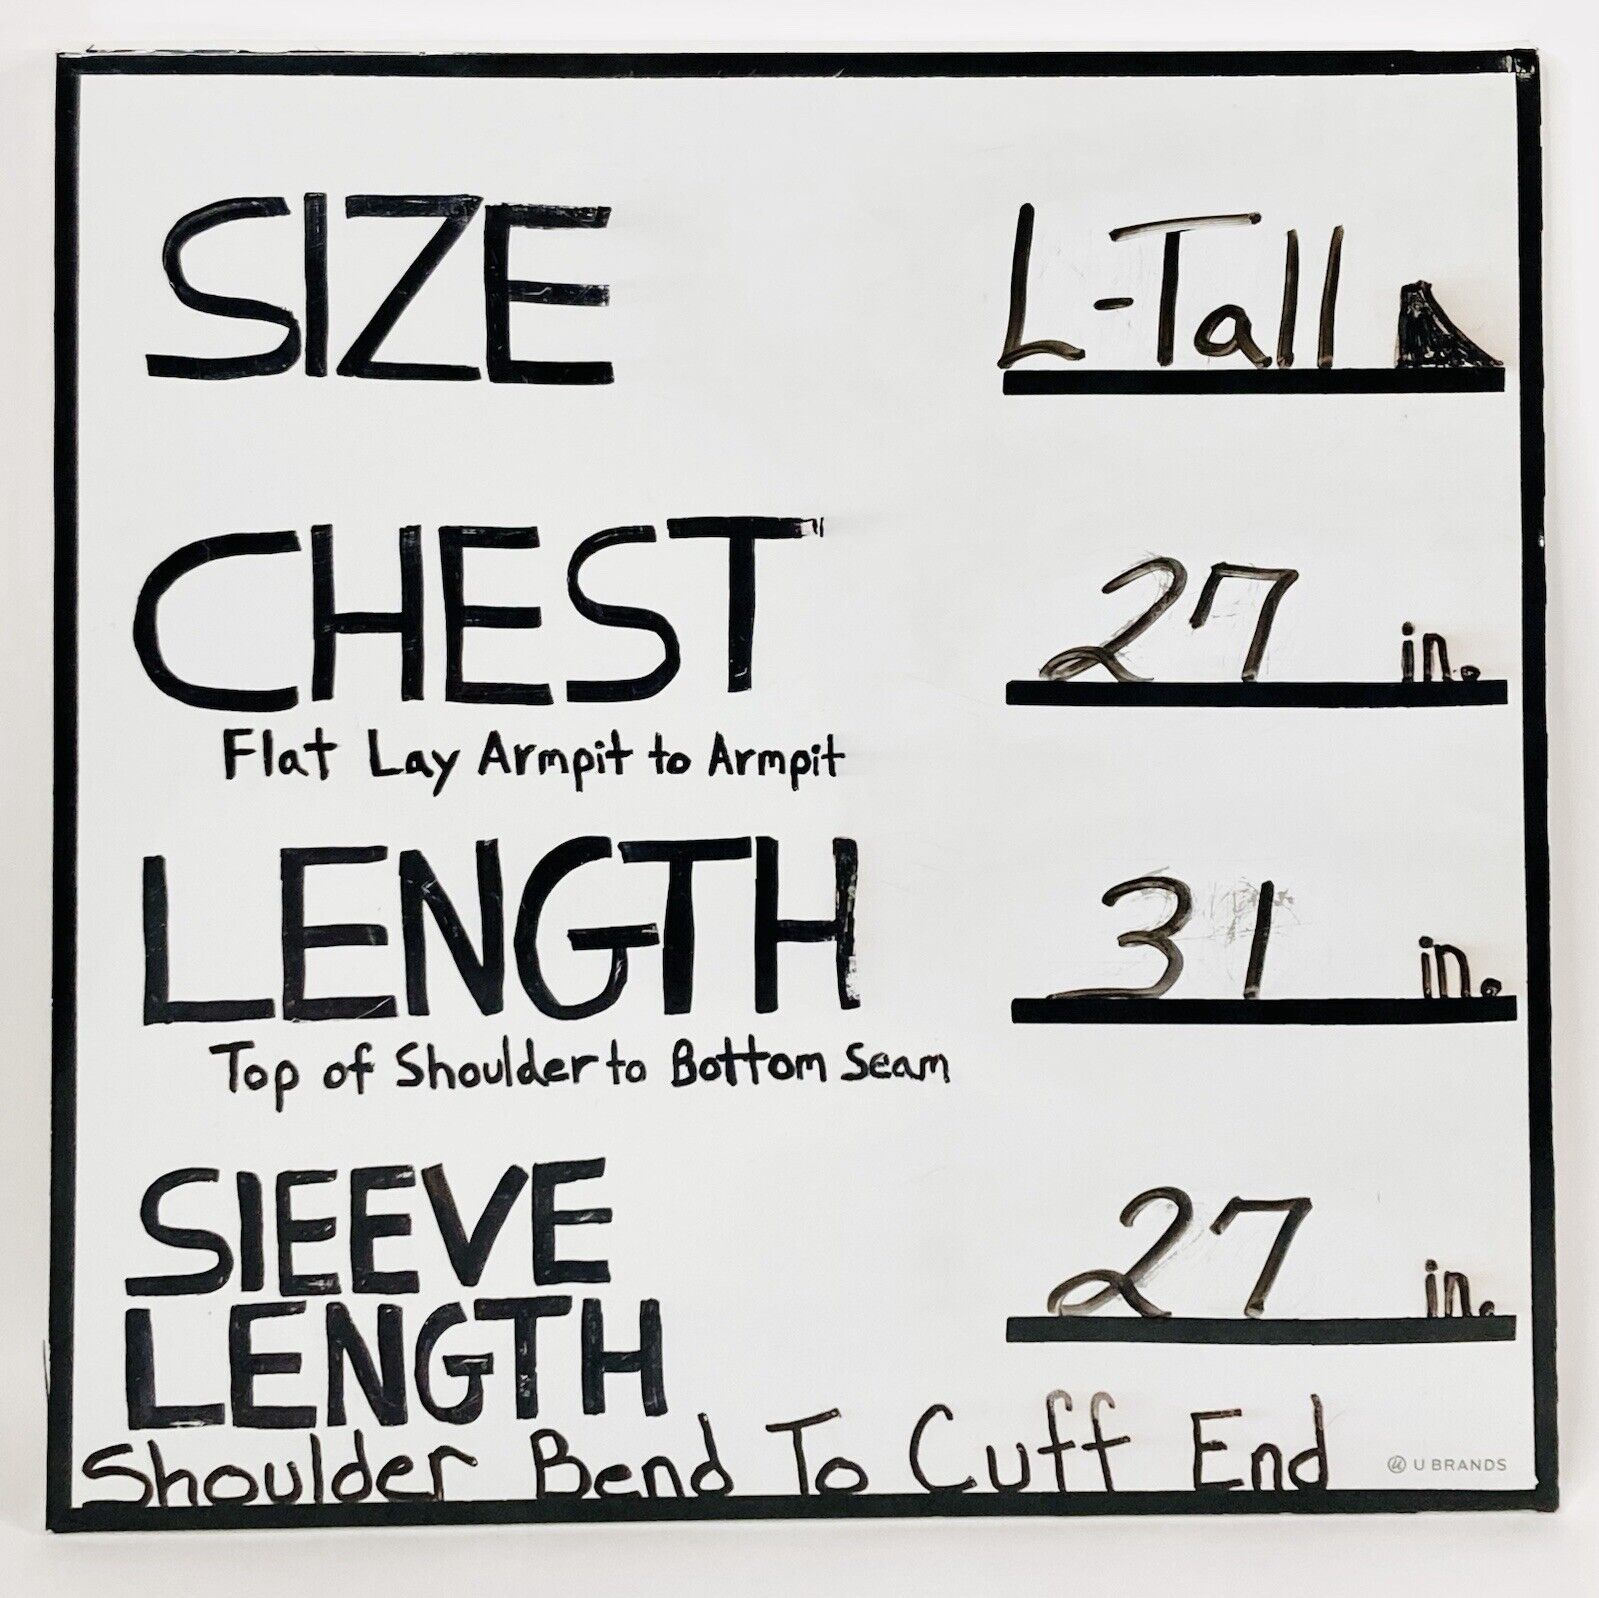 SIZE L-Tall
CHEST 27 in.
Flat Lay Armpit to Armpit
LENGTH 31 in.
Top of Shoulder to Bottom Seam
SlEEVE
LENGTH 27 in.
Shoulder Bend To Cuff End
U BRANDS